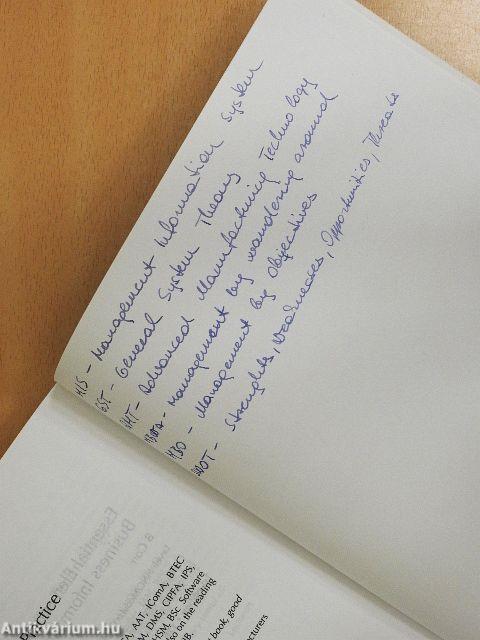 MIS - Management Information System
GST - General System Theory
AMT - Advanced Manufacturing Technology
MBWA - Management by wandering around
MBO - Management by Objectives
SWOT - Strenghts, Weaknesses, Opportunities, Threats
practice
AAT, IComA, BTEC
DMS, CIPFA, IPS,
BSc Software
in the reading
book, good
lecturers
Antikvárium.hu